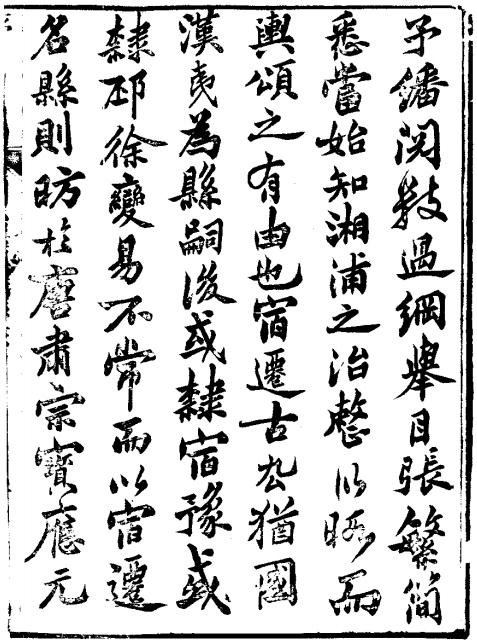 予繙閱數過綱舉目張繁簡
悉當始知湘浦之治慗以暇而
輿頌之有由也宿遷古厹猶國
漢夷為縣嗣後或隸宿豫或
隸邳徐變易不常而以宿遷
名縣則昉於唐肅宗寶應元